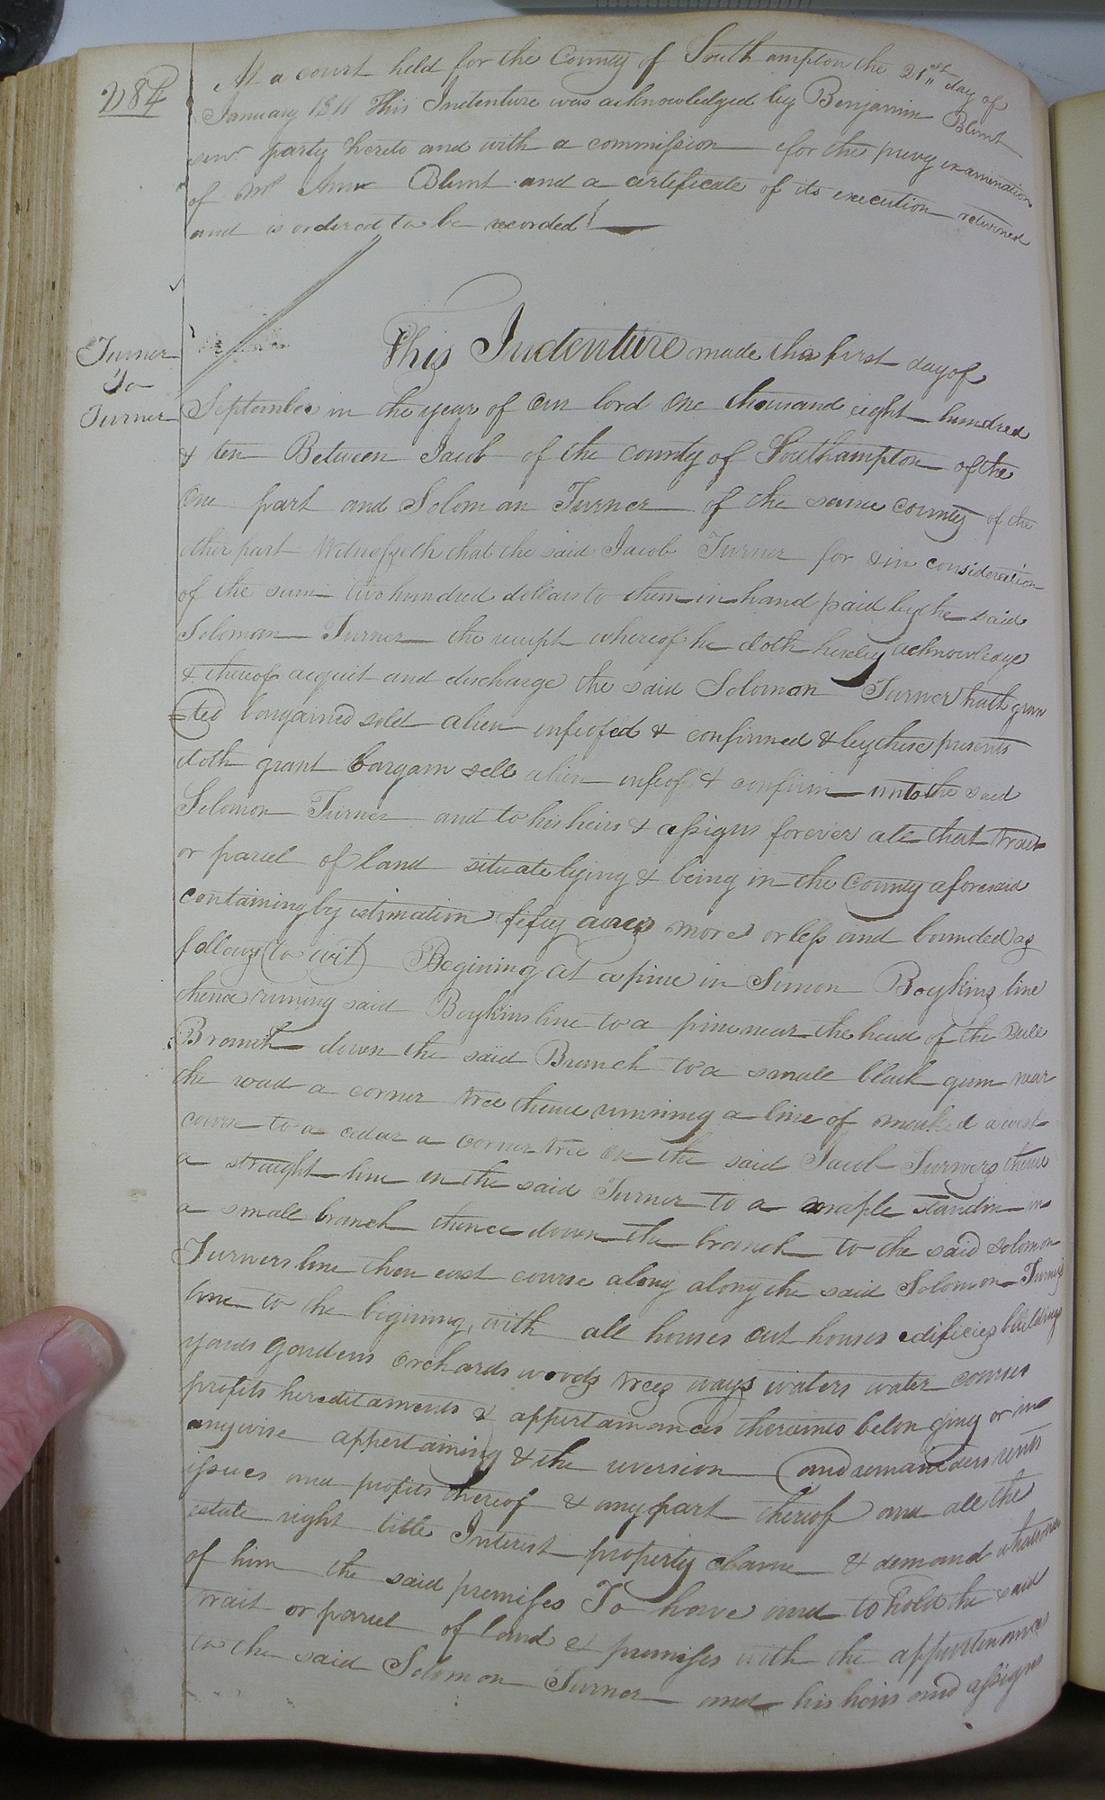 284
At a court held for the County of Southampton the 21st day of
January 1811 This Indenture was acknowledged by Benjamin Blunt
senr party hereto and with a commission for the privy examination
of Mrs Ann Blunt and a certificate of its execution returned
and is ordered to be recorded
Turner
To
Turner
This Indenture made the first day of
September in the year of our lord One thousand eight hundred
& ten Between Jacob of the county of Southampton of the
One part and Solomon Turner of the same county of the
other part Witnesseth that the said Jacob Turner for & in consideration
of the sum two hundred dollars to them in hand paid by he said
Soloman Turner the receipt whereof he doth hereby acknowledge
& thereof acquit and discharge the said Solomon Turner hath gran
=ted bargained sold alien infeofed & confirmed & by these presents
doth grant bargain sell alien infeof & confirm unto the said
Solomon Turner and to his heirs & assigns forever all that tract
or parcel of land situate lying & being in the County aforesaid
containing by estimation fifty acres more or less and bounded as
follows (to wit) Begining at a pine in Simon Boykins line
thence runing said Boykins line to a pine near the head of the
Branch down the said Branch to a small black gum near
the road a corner tree thence running a line of marked a west
course to a cedar a corner tree on the said Jacob Turners thence
a straight line on the said Turner to a maple standin in
a small branch thence down the branch to the said Solomon
Turners line then east course along along the said Solomon Turners
line to the begining, with all houses out houses edifices building
yards gardens orchards woods trees ways waters water courses
profits hereditaments & appertainances thereunto belonging or in
anywise appertaining & the reversion and remainders rents
issues and profits thereof & any part thereof and all the
estate right title Interest property claim & demand whatsoever
of him the said premises To have and to hold the said
tract or parcel of land & premises with the appurtenances
to the said Solomon Turner and his heirs and assigns